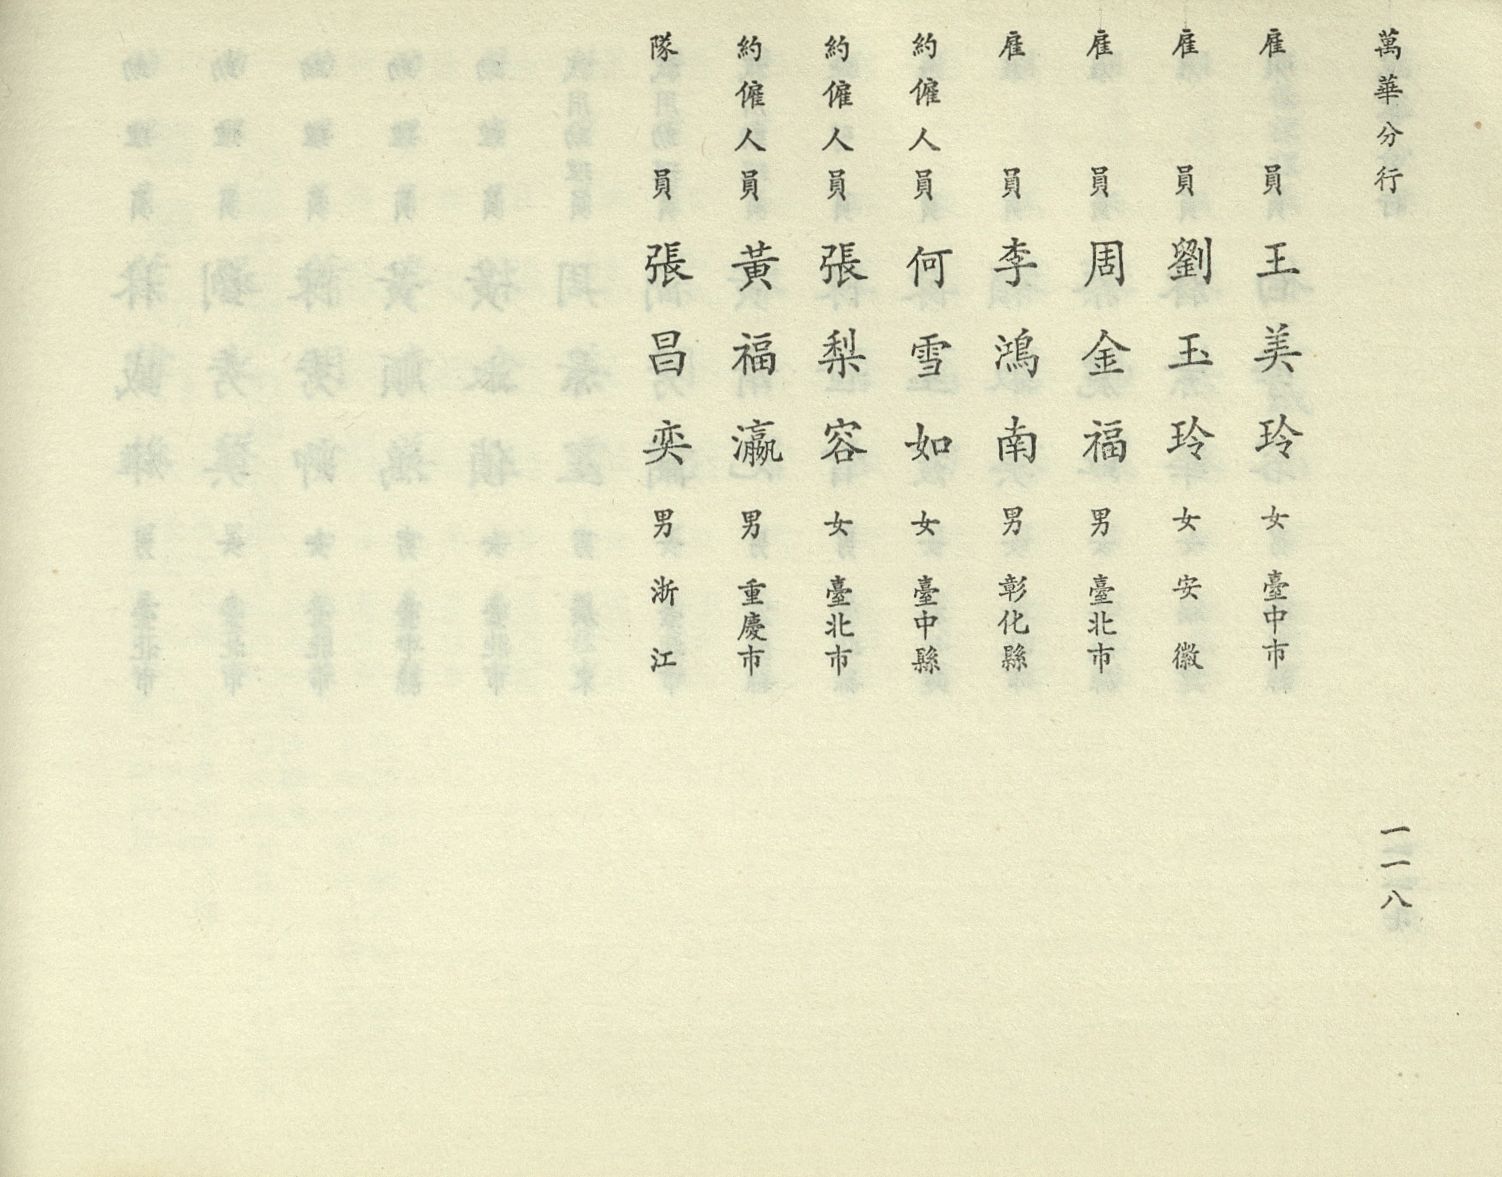 萬華分行 一一八
雇員 王美玲 女 臺中市
雇員 劉玉玲 女 安徽
雇員 周金福 男 臺北市
雇員 李鴻南 男 彰化縣
約僱人員 何雪如 女 臺中縣
約僱人員 張梨容 女 臺北市
約僱人員 黃福瀛 男 重慶市
隊員 張昌奕 男 浙江